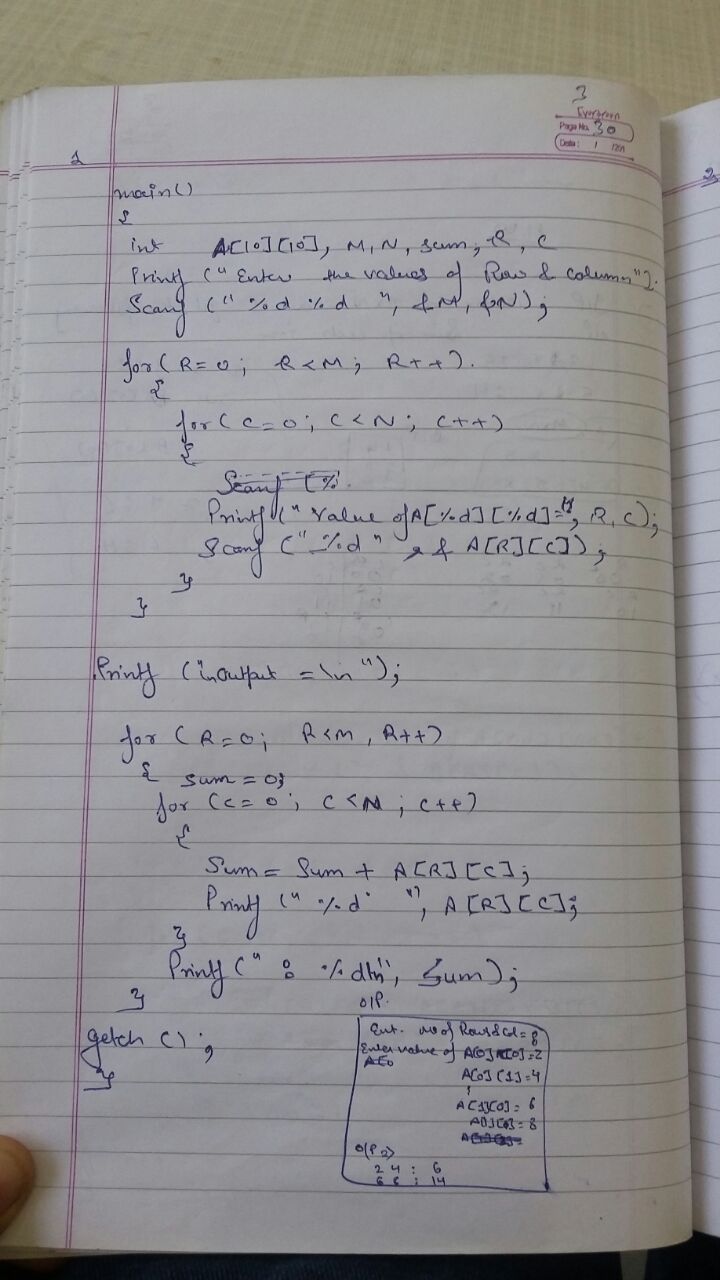 3
Evergreen
Page No. 30
Date: / /201
1
2
main()
{
int A[10][10], M, N, sum, R, C
Printf ("Enter the values of Row & column").
Scanf ("%d %d ", &M, &N);
for(R=0; R<M; R++).
{
for(C=0; C<N; C++)
{
Scanf (%.
Printf ("Value of A[%d][%d]=", R, C);
Scanf ("%d", & A[R][C]);
}
}
Printf ("\nOutput =\n");
for (R=0; R<M, R++)
{ sum = 0;
for (C=0; C<N; C++)
{
Sum = Sum + A[R][C];
Printf (" %d ", A[R][C];
}
Printf (" : %d\n", Sum);
}
O/P.
getch ();
}
Ent. no of Row & Col =
Enter value of A[0][0]=2
A[0
A[0][1]=4
A[1][0]=6
=8
O/P 2)
2 4 : 6
: 14